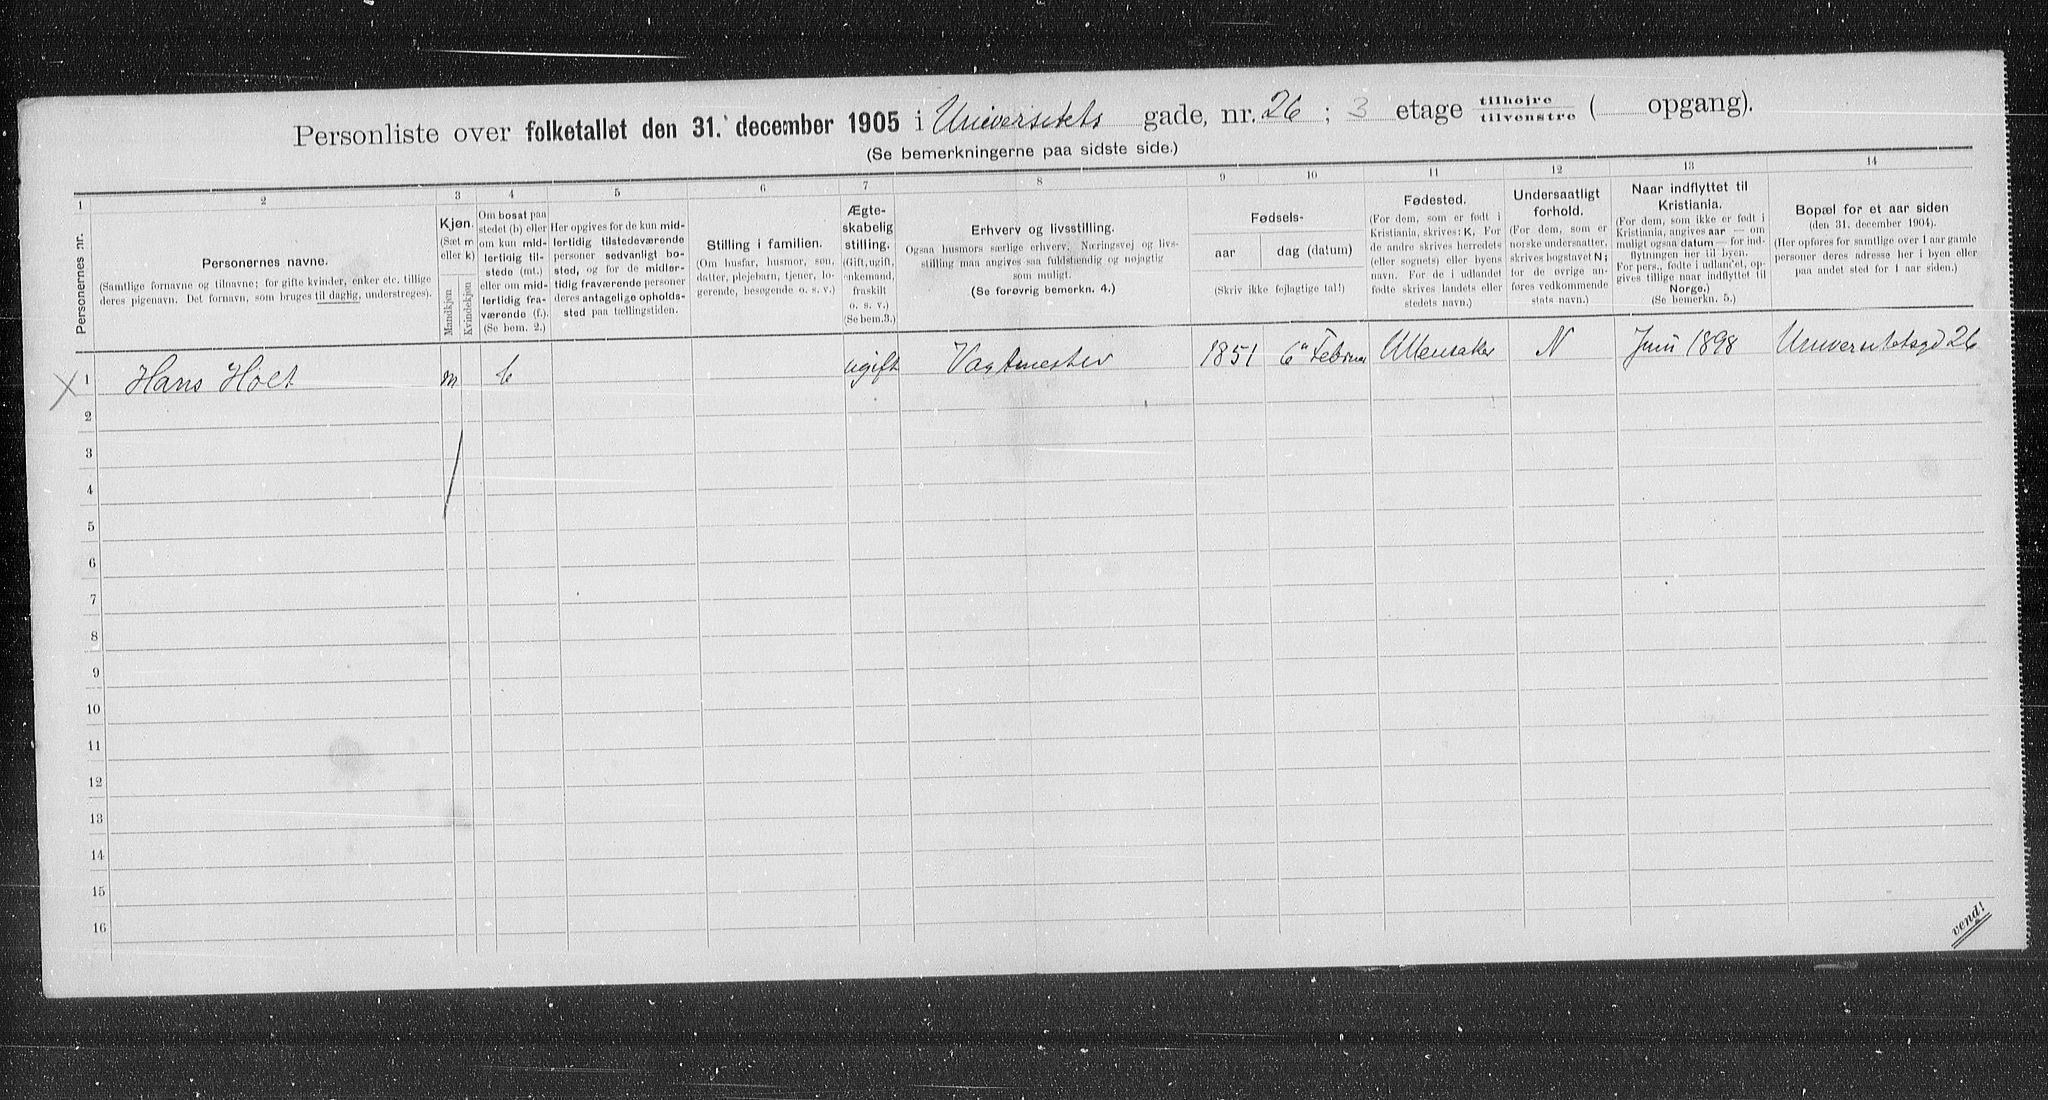 Personliste over folketallet den 31. december 1905 i Universitets gade, nr. 26 ; 3 etage tilhøjre tilvenstre ( opgang).
(Se bemerkningerne paa sidste side.)
1 2 3 4 5 6 7 8 9 10 11 12 13 14
Personernes nr.
Personernes navne.
(Samtlige fornavne og tilnavne; for gifte kvinder, enker etc. tillige
deres pigenavn. Det fornavn, som bruges til daglig, understreges).
Kjøn.
(Sæt m
eller k)
Mandkjøn
Kvindekjøn
Om bosat paa
stedet (b) eller
om kun mid-
lertidig til-
stede (mt.)
eller om mid-
lertidig fra-
værende (f.)
(Se bem. 2.)
Her opgives for de kun mid-
lertidig tilstedeværende
personer sedvanligt bo-
sted, og for de midler-
tidig fraværende personer
deres antagelige opholds-
sted paa tællingstiden.
Stilling i familien.
(Om husfar, husmor, søn,
datter, plejebarn, tjener, lo-
gerende, besøgende o. s. v.)
Ægte-
skabelig
stilling.
(Gift, ugift,
enkemand,
fraskilt
o. s. v.)
(Se bem.3.)
Erhverv og livsstilling.
Ogsaa husmors særlige erhverv. Næringsvej og livs-
stilling maa angives saa fuldstændig og nøjagtig
som muligt.
(Se forøvrig bemerkn. 4.)
Fødsels-
aar
dag (datum)
(Skriv ikke fejlagtige tal!)
Fødested.
(For dem, som er født i
Kristiania, skrives: K. For
de andre skrives herredets
(eller sognets) eller byens
navn. For de i udlandet
fødte skrives landets eller
stedets navn.)
Undersaatligt
forhold.
(For dem, som er
norske undersaatter,
skrives bogstavet N;
for de øvrige an-
føres vedkommende
stats navn.)
Naar indflyttet til
Kristiania.
(For dem, som ikke er født i
Kristiania, angives aar — om
muligt ogsaa datum — for ind-
flytningen her til byen.
For pers., fødte i udlandet, op-
gives tillige naar indflyttet til
Norge.)
(Se bemerkn. 5.)
Bopæl for et aar siden
(den 31. december 1904).
(Her opføres for samtlige over 1 aar gamle
personer deres adresse her i byen eller
paa andet sted for 1 aar siden.)
1 Hans Holt m b ugift Vagtmester 1851 6" Februar Ullensaker N Juni 1898 Universitetsgd 26
2
3
4
5
6
7
8
9
10
11
12
13
14
15
16
vend!